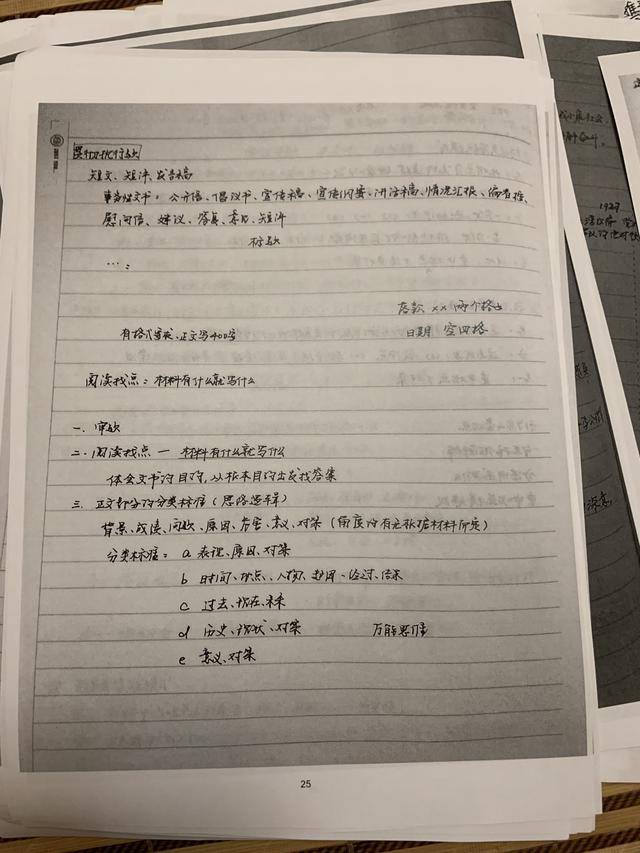 短文、短评、发言稿
事务性文书：公开信、倡议书、宣传稿、宣传纲要、讲话稿、情况汇报、编者按、
慰问信、建议、答复、意见、短评
标题
…：
落款 xx 两个格
有格式要求、正文写400字
日期 空四格
阅读找点：材料有什么就写什么
一、审题
二、阅读找点 — 材料有什么就写什么
体会文书的目的，从根本目的出发找答案
三、正文部分的分类标准（思路选择）
背景、成绩、问题、原因、危害、意义、对策（角度的有无根据材料所定）
分类标准：a 表现、原因、对策
b 时间、地点、人物、起因、经过、结果
c 过去、现在、未来
d 历史、现状、对策 万能
e 意义、对策
25